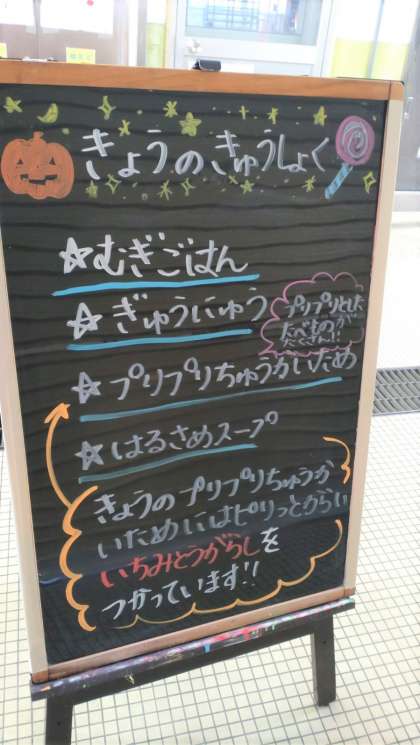 きょうのきゅうしょく
☆むぎごはん
☆ぎゅうにゅう
プリプリとした
たべものが
たくさん!!
☆プリプリちゅうかいため
☆はるさめスープ
きょうのプリプリちゅうか
いためにはピリっとからい
いちみとうがらしを
つかっています!!